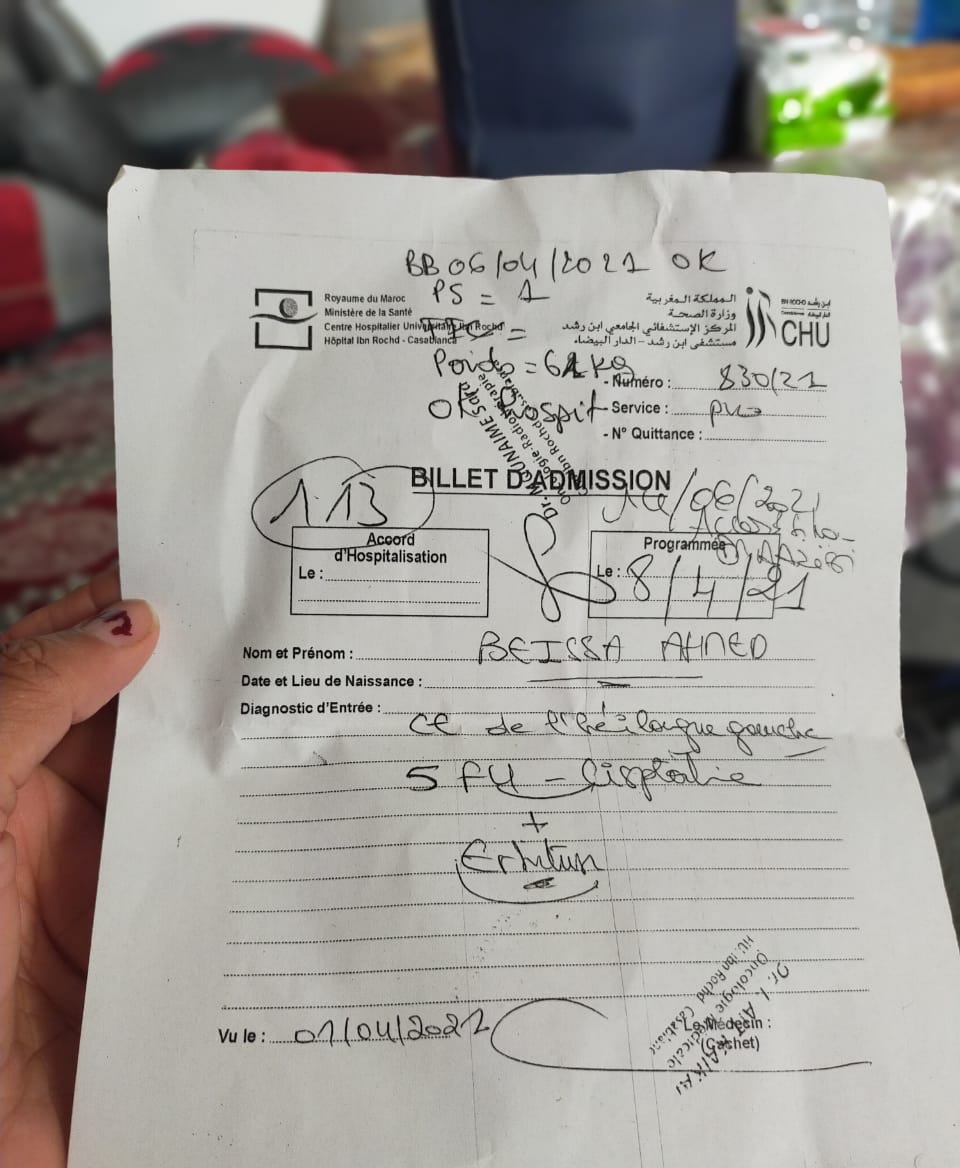 BB 06/04/2021 OK
PS = 1
Royaume du Maroc
Ministère de la Santé
Centre Hospitalier Universitaire Ibn Rochd
Hôpital Ibn Rochd - Casablanca
المملكة المغربية
وزارة الصحة
المركز الإستشفائي الجامعي ابن رشد
مستشفى ابن رشد - الدار البيضاء
IBN ROCHD ابن رشد
CHU
Poids = 61kg
OK Hospit
- Numéro : 830/21
- Service :
- N° Quittance :
BILLET D'ADMISSION
1.13
/06/2021
Accord
d'Hospitalisation
Le :
Programmée
Le : 8/4/21
Nom et Prénom : BEISSA AHMED
Date et Lieu de Naissance :
Diagnostic d'Entrée :
de l'hémilangue gauche
5 FU - Cisplatine
+
Erbitux
Vu le : 01/04/2021
Le Médecin :
(Cachet)
Oncologie Médicale